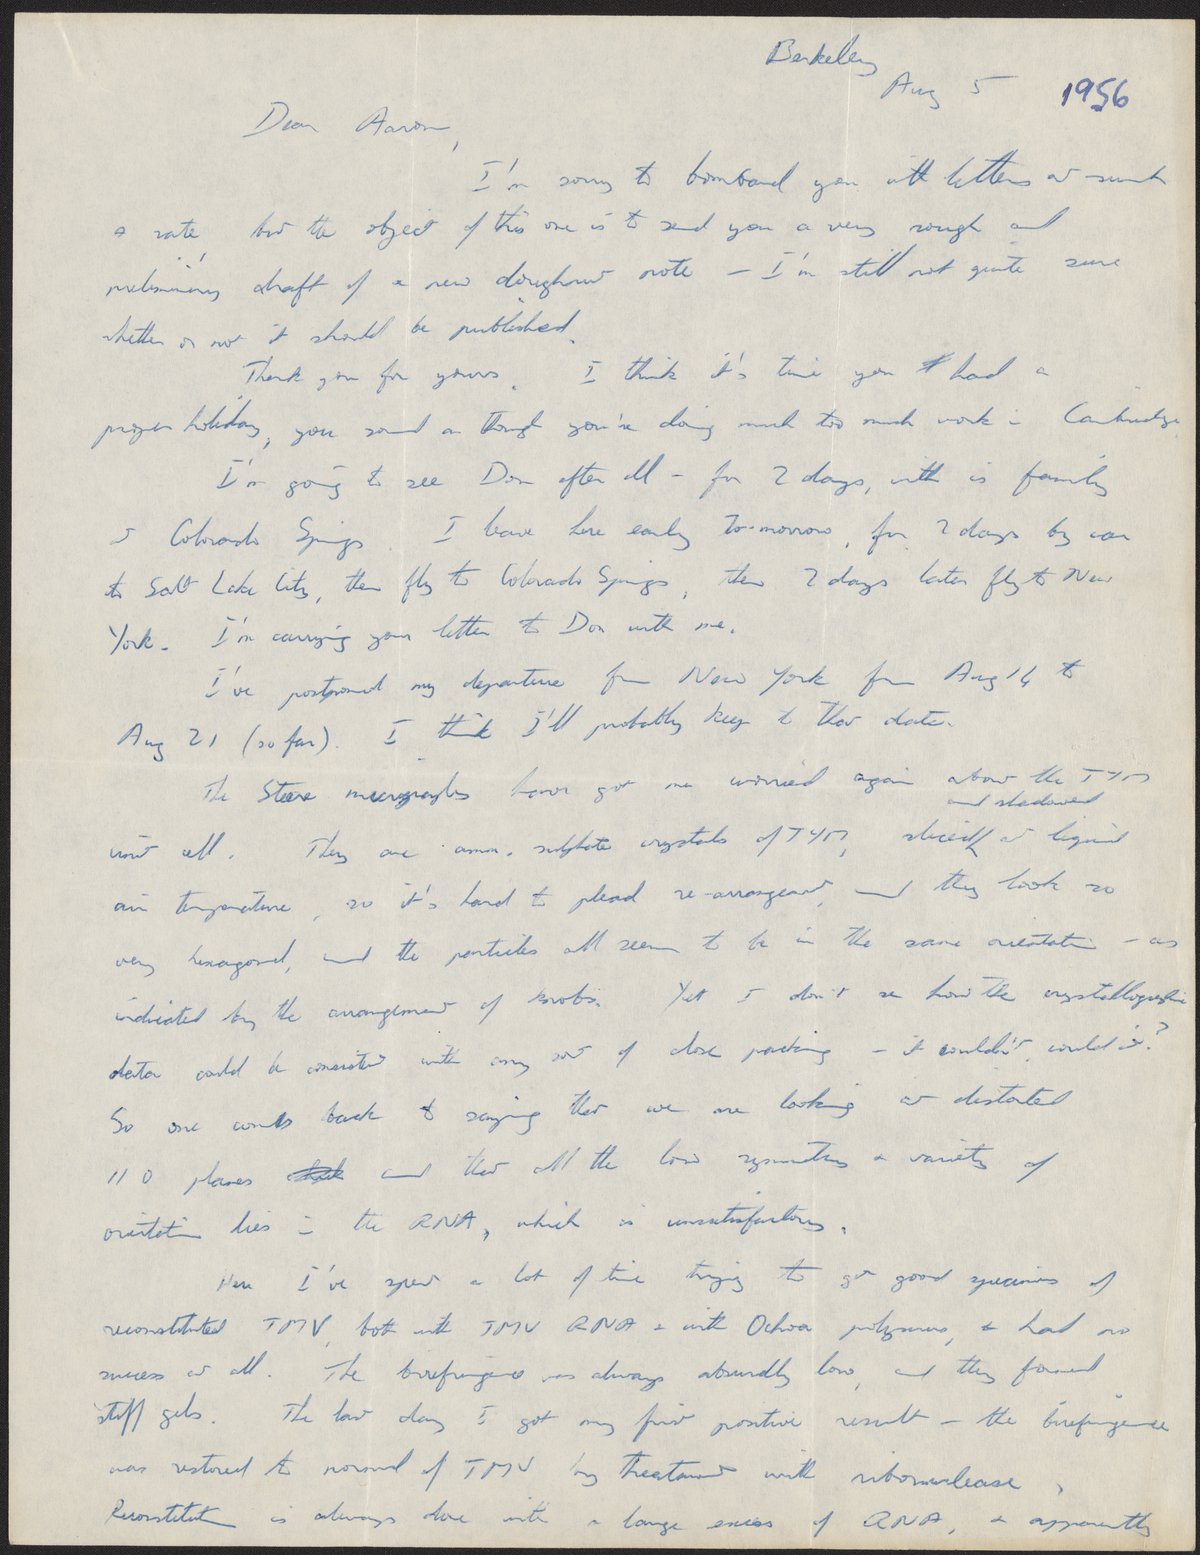 Berkeley
Aug 5 1956
Dear Aaron,
I'm sorry to bombard you with letters at such
a rate, but the object of this one is to send you a very rough and
preliminary draft of a new doughnut note – I'm still not quite sure
whether or not it should be published.
Thank you for yours. I think it's time you had a
proper holiday, you sound as though you're doing much too much work in Cambridge.
I'm going to see Don after all – for 2 days, with is family
in Colorado Springs. I leave here early to-morrow, for 2 days by car
to Salt Lake City, then fly to Colorado Springs, then 2 days later fly to New
York. I'm carrying your letter to Don with me.
I've postponed my departure from New York from Aug 14 to
Aug 21 (so far). I think I'll probably keep to that date.
The Steere micrographs have got me worried again about the TYM
and shadowed
unit cell. They are amm. sulphate crystals of TYM, sliced at liquid
air temperature, so it's hard to plead re-arrangement, and they look so
very hexagonal, and the particles all seem to be in the same orientation – as
indicated by the arrangement of knobs. Yet I don't see how the crystallographic
data could be consistent with any sort of close packing – it couldn't, could it?
So one comes back to saying that we are looking at distorted
110 planes and that all the low symmetry & variety of
orientation lies in the RNA, which is unsatisfactory.
Here I've spent a lot of time trying to get good specimens of
reconstituted TMV, both with TMV RNA & with Ochoa polymers, & had no
success at all. The birefringence was always absurdly low, and they formed
stiff gels. The last day I got my first positive result – the birefringence
was restored to normal of TMV by treatment with ribonuclease.
Reconstitution is always done with a large excess of RNA, & apparently